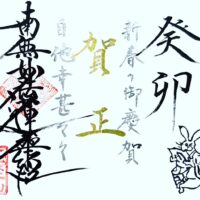 癸卯
新春の御慶賀
賀正
自他幸甚々々
南無妙法蓮華経